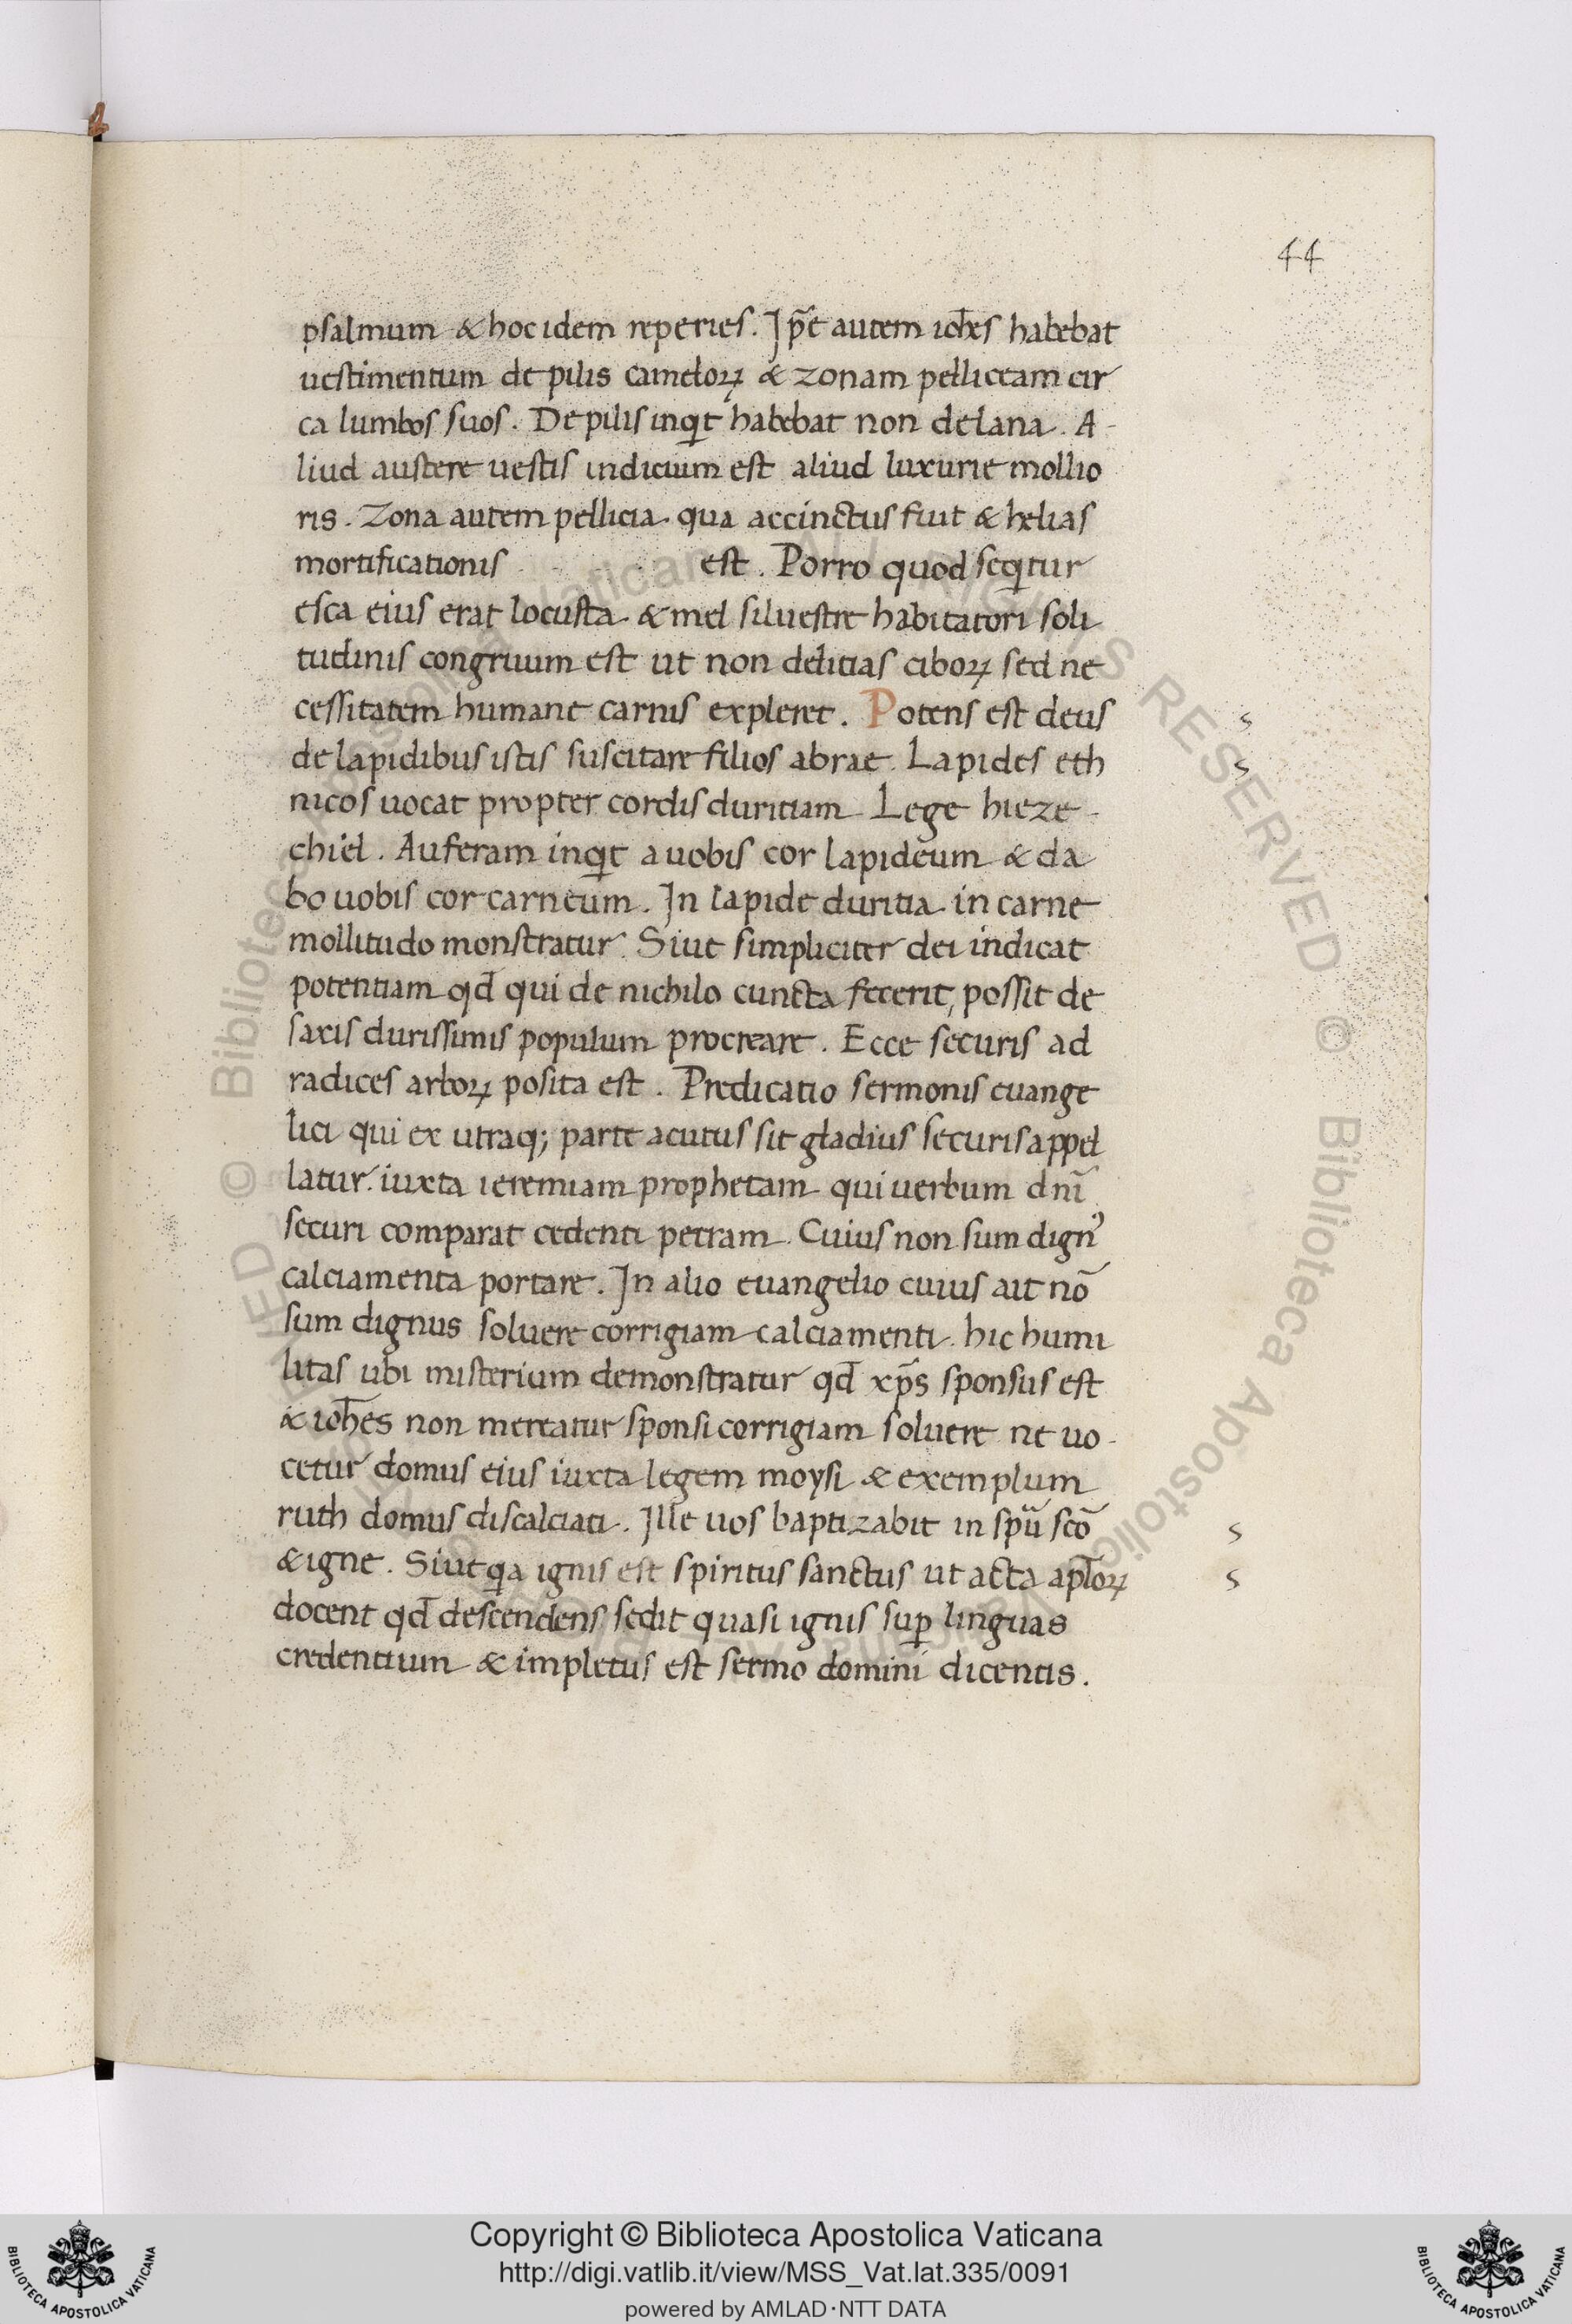 44
psalmum & hoc idem reperies. Jp̄e autem ioh̄es habebat
uestimentum de pilis cameloꝝ & zonam pelliceam cir
ca lumbos suos. De pilis inqͥt habebat non de lana. A-
liud austere uestis indicium est aliud luxurie mollio
ris. Zona autem pellicia qua accinctus fuit & helias
mortificationis est. Porro quod seqͥtur
esca eius erat locusta & mel siluestre habitatori soli
tudinis congruum est ut non delitias ciboꝝ sed ne
cessitatem humane carnis expleret. Potens est deus
de lapidibus istis suscitare filios abrae. Lapides eth
nicos uocat propter cordis duritiam Lege hieze-
chiel. Auferam inqͥt a uobis cor lapideum & da
bo uobis cor carneum. Jn lapide duritia in carne
mollitudo monstratur. Siue simpliciter dei indicat
potentiam qd̄ qui de nichilo cuncta fecerit, possit de
saxis durissimis populum procreare. Ecce securis ad
radices arboꝝ posita est. Predicatio sermonis euange
lici qui ex utraq; parte acutus sit gladius securis appel
latur. iuxta ieremiam prophetam qui uerbum dnī
securi comparat cedenti petram. Cuius non sum dignꝰ
calciamenta portare. Jn alio euangelio cuius ait nō
sum dignus soluere corrigiam calciamenti. hic humi
litas ubi misterium demonstratur qd̄ xp̄s sponsus est
& ioh̄es non mereatur sponsi corrigiam soluere ne uo-
cetur domus eius iuxta legem moysi & exemplum
ruth domus discalciati. Jlle uos baptizabit in spū scō
& igne. Siue qͥa ignis est spiritus sanctus ut acta apl̄oꝝ
docent qd̄ descendens sedit quasi ignis suꝑ linguas
credentium & impletus est sermo domini dicentis.
s
s
s
s
© Biblioteca Apostolica Vaticana ALL RIGHTS RESERVED
Copyright © Biblioteca Apostolica Vaticana
http://digi.vatlib.it/view/MSS_Vat.lat.335/0091
powered by AMLAD·NTT DATA
BIBLIOTECA APOSTOLICA VATICANA
BIBLIOTECA APOSTOLICA VATICANA